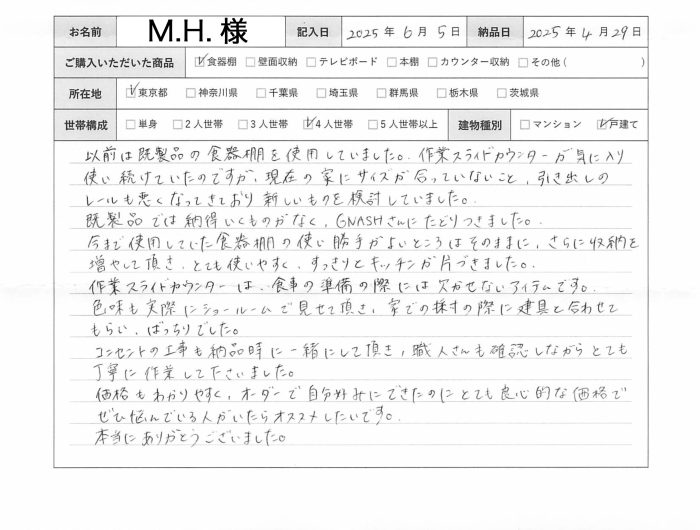 お名前 M.H. 様 記入日 2025 年 6 月 5 日 納品日 2025 年 4 月 29 日
ご購入いただいた商品 ☑食器棚 □壁面収納 □テレビボード □本棚 □カウンター収納 □その他( )
所在地 ☑東京都 □神奈川県 □千葉県 □埼玉県 □群馬県 □栃木県 □茨城県
世帯構成 □単身 □2人世帯 □3人世帯 ☑4人世帯 □5人世帯以上 建物種別 □マンション ☑戸建て
以前は既製品の食器棚を使用していました。作業スライドカウンターが気に入り
使い続けていたのですが、現在の家にサイズが合っていないこと、引き出しの
レールも悪くなってきており新しいものを検討していました。
既製品では納得いくものがなく、GNASHさんにたどりつきました。
今まで使用していた食器棚の使い勝手がよいところはそのままに、さらに収納を
増やして頂き、とても使いやすく、すっきりとキッチンが片づきました。
作業スライドカウンターは、食事の準備の際には欠かせないアイテムです。
色味も実際にショールームで見せて頂き、家での採寸の際に建具と合わせて
もらい、ばっちりでした。
コンセントの工事も納品時に一緒にして頂き、職人さんも確認しながらとても
丁寧に作業して下さいました。
価格もわかりやすく、オーダーで自分好みにできたのにとても良心的な価格で
ぜひ悩んでいる人がいたらオススメしたいです。
本当にありがとうございました。